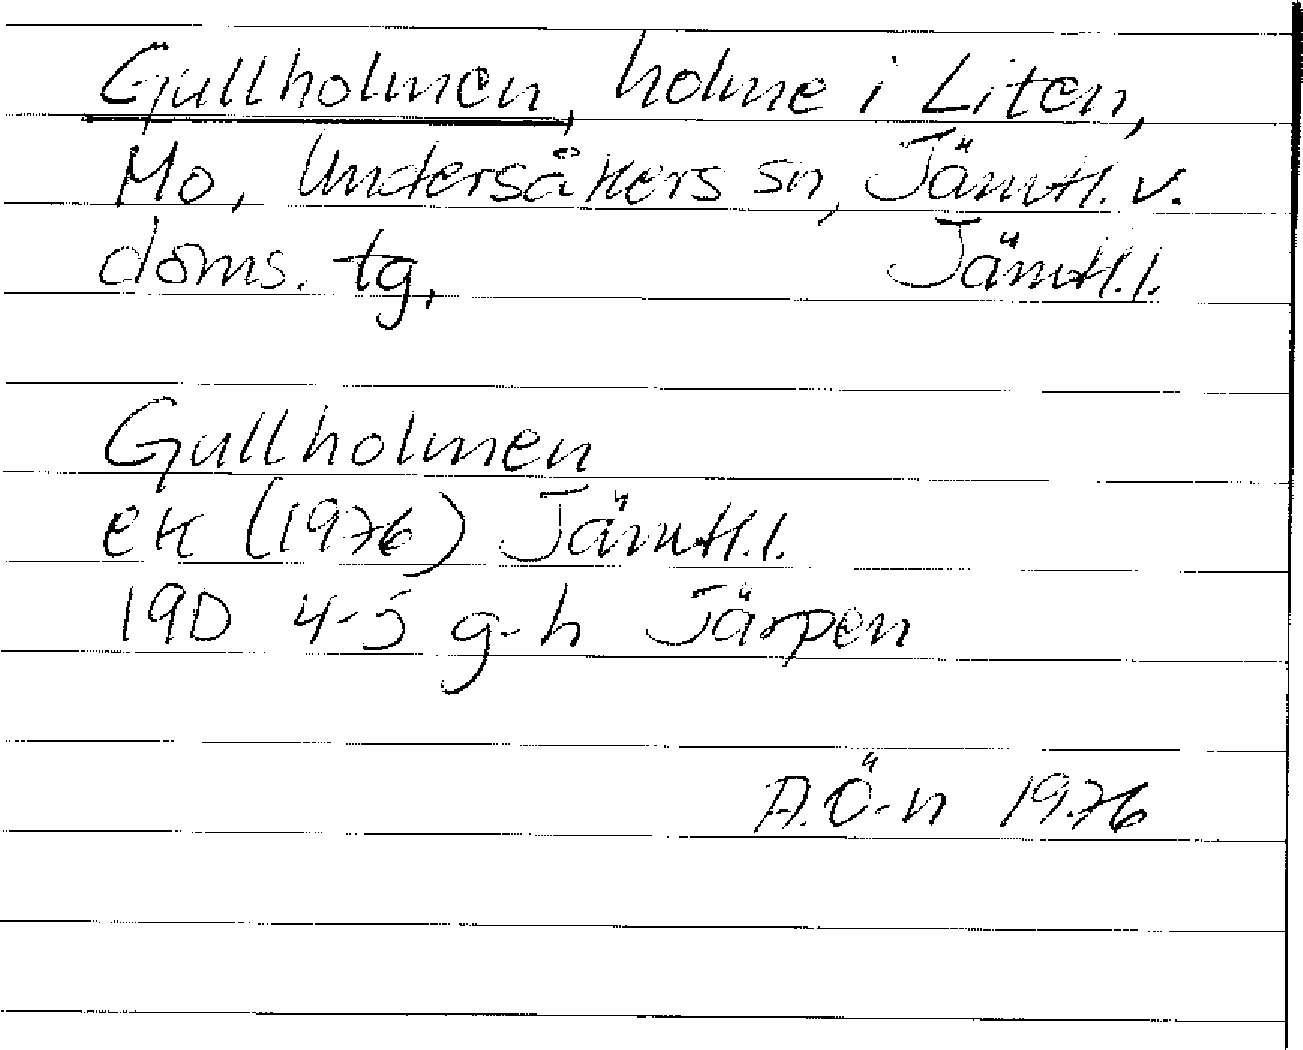 Gullholmen, holme i Liten,
Mo, Undersåkers sn, Jämtl. v.
doms. tg, Jämtl.l.
Gullholmen
ek (1976) Jämtl.l.
19D 4-5 g-h Järpen
A.Ö-n 1976